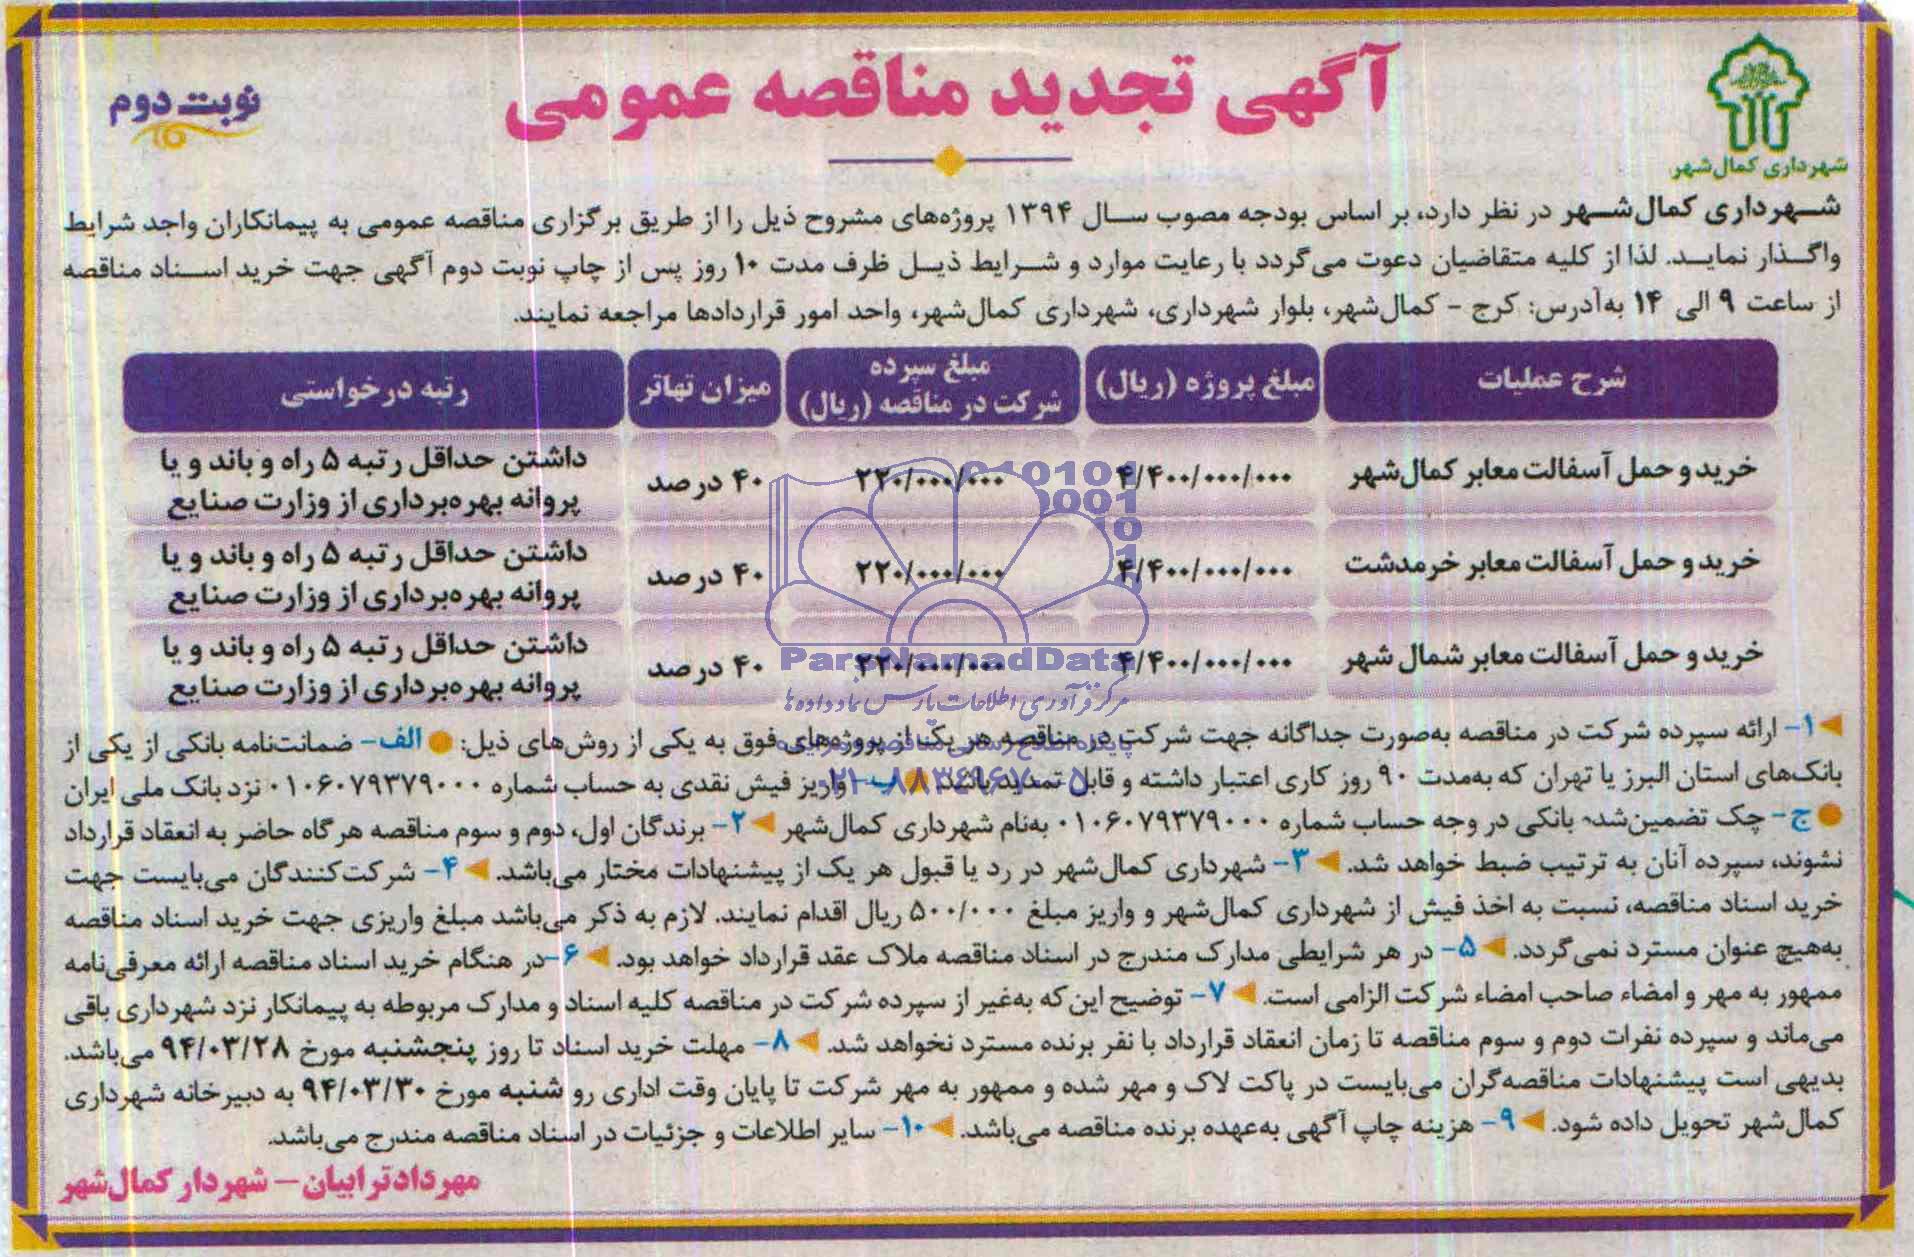 آگهی تجدید مناقصه عمومی
نوبت دوم
شهرداری کمال‌شهر
شهرداری کمال‌شهر در نظر دارد، بر اساس بودجه مصوب سال ۱۳۹۴ پروژه‌های مشروح ذیل را از طریق برگزاری مناقصه عمومی به پیمانکاران واجد شرایط
واگذار نماید. لذا از کلیه متقاضیان دعوت می‌گردد با رعایت موارد و شرایط ذیل ظرف مدت ۱۰ روز پس از چاپ نوبت دوم آگهی جهت خرید اسناد مناقصه
از ساعت ۹ الی ۱۴ به‌آدرس: کرج - کمال‌شهر، بلوار شهرداری، شهرداری کمال‌شهر، واحد امور قراردادها مراجعه نمایند.
شرح عملیات | مبلغ پروژه (ریال) | مبلغ سپرده شرکت در مناقصه (ریال) | میزان تهاتر | رتبه درخواستی
خرید و حمل آسفالت معابر کمال‌شهر | ۴/۴۰۰/۰۰۰/۰۰۰ | ۲۲۰/۰۰۰/۰۰۰ | ۴۰ درصد | داشتن حداقل رتبه ۵ راه و باند و یا پروانه بهره‌برداری از وزارت صنایع
خرید و حمل آسفالت معابر خرمدشت | ۴/۴۰۰/۰۰۰/۰۰۰ | ۲۲۰/۰۰۰/۰۰۰ | ۴۰ درصد | داشتن حداقل رتبه ۵ راه و باند و یا پروانه بهره‌برداری از وزارت صنایع
خرید و حمل آسفالت معابر شمال شهر | ۴/۴۰۰/۰۰۰/۰۰۰ | ۲۲۰/۰۰۰/۰۰۰ | ۴۰ درصد | داشتن حداقل رتبه ۵ راه و باند و یا پروانه بهره‌برداری از وزارت صنایع
ParsNamadData
مرکز فرآوری اطلاعات پارس نماد داده‌ها
۰۲۱-۸۸۳۴۹۶۷۰-۵
۱- ارائه سپرده شرکت در مناقصه به‌صورت جداگانه جهت شرکت در مناقصه هر یک از پروژه‌های فوق به یکی از روش‌های ذیل: الف- ضمانت‌نامه بانکی از یکی از
بانک‌های استان البرز یا تهران که به‌مدت ۹۰ روز کاری اعتبار داشته و قابل تمدید باشد. ب- واریز فیش نقدی به حساب شماره ۰۱۰۶۰۷۹۳۷۹۰۰۰ نزد بانک ملی ایران
ج- چک تضمین‌شده بانکی در وجه حساب شماره ۰۱۰۶۰۷۹۳۷۹۰۰۰ به‌نام شهرداری کمال‌شهر ۲- برندگان اول، دوم و سوم مناقصه هرگاه حاضر به انعقاد قرارداد
نشوند، سپرده آنان به ترتیب ضبط خواهد شد. ۳- شهرداری کمال‌شهر در رد یا قبول هر یک از پیشنهادات مختار می‌باشد. ۴- شرکت‌کنندگان می‌بایست جهت
خرید اسناد مناقصه، نسبت به اخذ فیش از شهرداری کمال‌شهر و واریز مبلغ ۵۰۰/۰۰۰ ریال اقدام نمایند. لازم به ذکر می‌باشد مبلغ واریزی جهت خرید اسناد مناقصه
به‌هیچ عنوان مسترد نمی‌گردد. ۵- در هر شرایطی مدارک مندرج در اسناد مناقصه ملاک عقد قرارداد خواهد بود. ۶-در هنگام خرید اسناد مناقصه ارائه معرفی‌نامه
ممهور به مهر و امضاء صاحب امضاء شرکت الزامی است. ۷- توضیح این‌که به‌غیر از سپرده شرکت در مناقصه کلیه اسناد و مدارک مربوطه به پیمانکار نزد شهرداری باقی
می‌ماند و سپرده نفرات دوم و سوم مناقصه تا زمان انعقاد قرارداد با نفر برنده مسترد نخواهد شد. ۸- مهلت خرید اسناد تا روز پنجشنبه مورخ ۹۴/۰۳/۲۸ می‌باشد.
بدیهی است پیشنهادات مناقصه‌گران می‌بایست در پاکت لاک و مهر شده و ممهور به مهر شرکت تا پایان وقت اداری رو شنبه مورخ ۹۴/۰۳/۳۰ به دبیرخانه شهرداری
کمال‌شهر تحویل داده شود. ۹- هزینه چاپ آگهی به‌عهده برنده مناقصه می‌باشد. ۱۰- سایر اطلاعات و جزئیات در اسناد مناقصه مندرج می‌باشد.
مهرداد ترابیان - شهردار کمال‌شهر